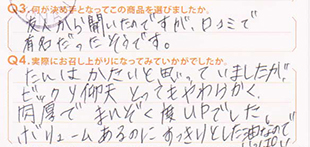 Q3.何が決め手となってこの商品を選びましたか。
友人から聞いたのですが、口コミで
有名だったそうです。
Q4.実際にお召し上がりになってみていかがでしたか。
たんはかたいと思っていましたが、
ビックリ仰天 とってもやわらかく、
肉厚で まれぞく 後しPでした。
ボリュームあるのに すっきりとした油なので